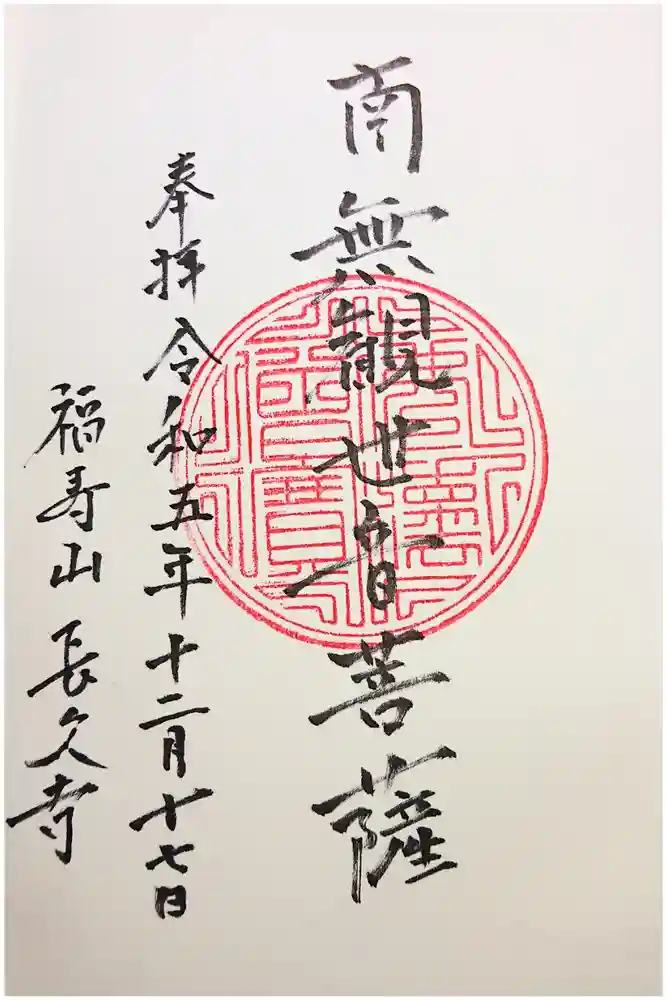 南無観世音菩薩
奉拝令和五年十二月十七日
福寿山長久寺